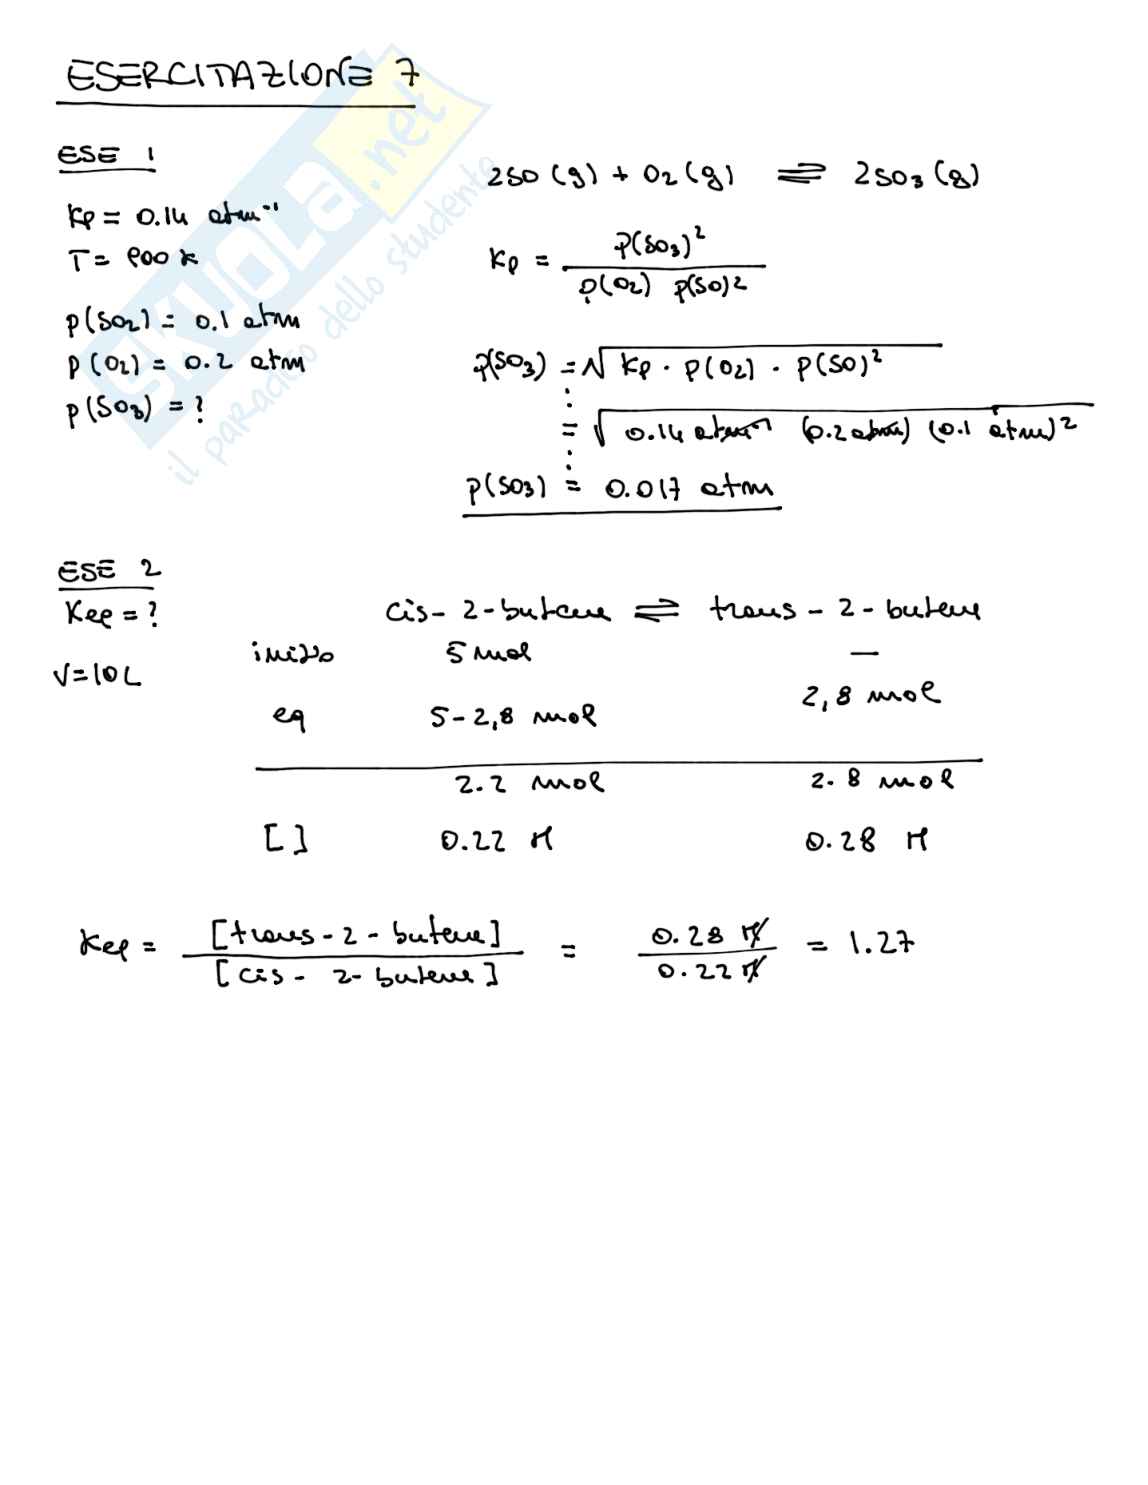 ESERCITAZIONE 7
ESE 1
Kp = 0.14 atm⁻¹
T = 900 K
p(SO2) = 0.1 atm
p(O2) = 0.2 atm
p(SO3) = ?
2SO(g) + O2(g) ⇌ 2SO3(g)
Kp = p(SO3)² / p(O2) p(SO)²
p(SO3) = √ Kp · p(O2) · p(SO)²
= √ 0.14 atm⁻¹ (0.2 atm) (0.1 atm)²
p(SO3) = 0.017 atm
ESE 2
Keq = ?
V = 10 L
cis-2-butene ⇌ trans-2-butene
inizio 5 mol —
eq 5-2,8 mol 2,8 mol
2.2 mol 2.8 mol
[ ] 0.22 M 0.28 M
Keq = [trans-2-butene] / [cis-2-butene] = 0.28 M / 0.22 M = 1.27
SKUOLA.net
il paradiso dello studente